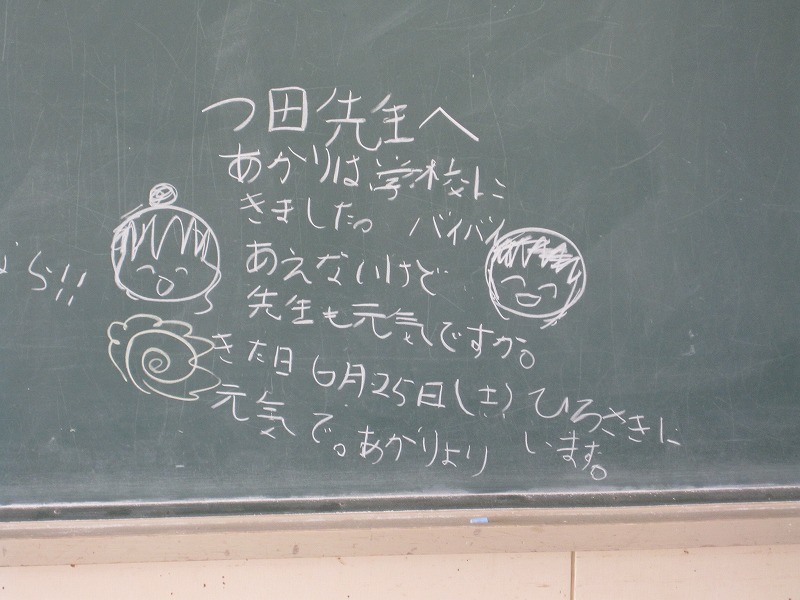 つ田先生へ
あかりは学校に
きました。 バイバイ
あえないけど
先生も元気ですか。
きた日 6月25日(土) ひろさきに
います。
元気で。あかりより
ら!!